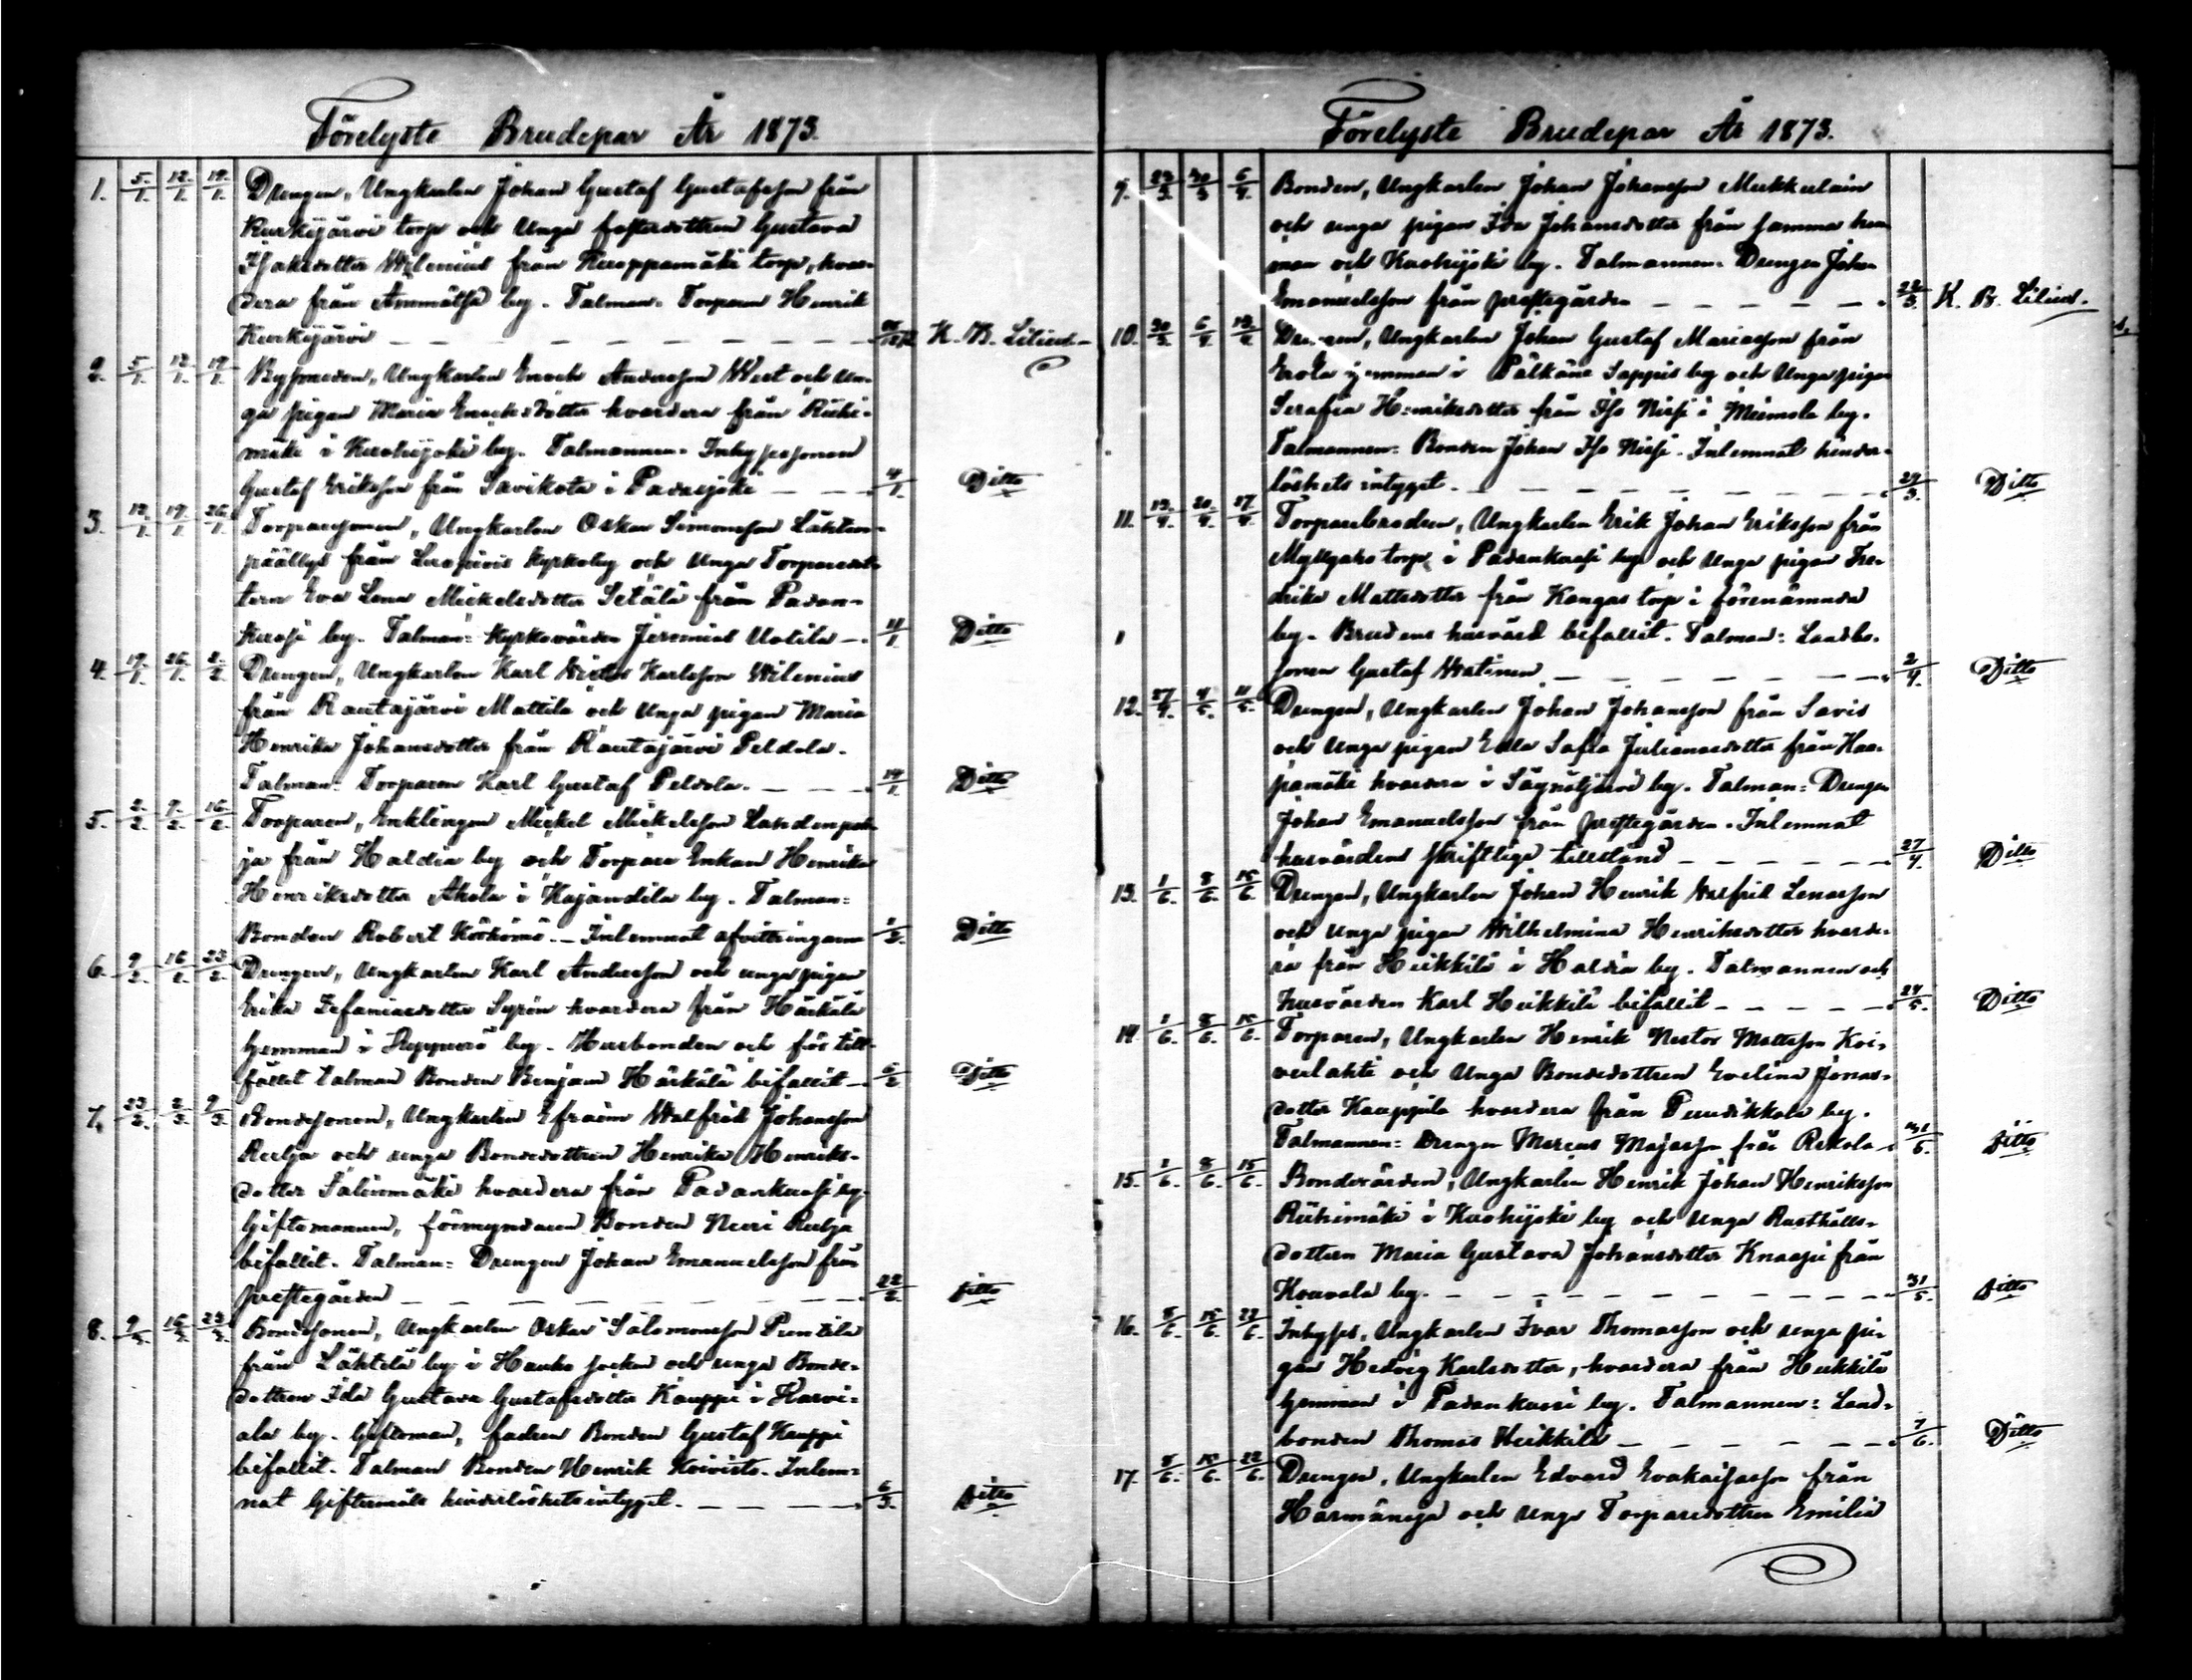 Förelyste Brudepar År 1873.
1. 5/1. 12/1. 19/1. Drengen, Ungkarlen Johan Gustaf Gustafsson från
Kurkijärvi torp och Unga fosterdottren Gustava
Isaksdotter Wilenius från Kuoppamäki torp, hvar-
dera från Ammätsä by. Talman: Torparen Henrik
Kurkijärvi K. B. Lilius
2. 5/1. 12/1. 19/1. Bysmeden, Ungkarlen Enoch Andersson West och Un-
ga pigan Maria Enochsdotter hvardera från Riihi-
mäki i Kuohijoki by. Talmannen: Inhysessonen
Gustaf Eriksson från Savikota i Padasjoki 4/1. Ditto
3. 12/1. 19/1. 26/1. Torparesonen, Ungkarlen Oskar Simonsson Lähteen-
päällys från Luopiois Kyrkoby och Unga Torparedot-
tern Eva Lena Mickelsdotter Setälä från Padan-
kuosi by. Talman: Kyrkovärden Jeremias Uotila 11/1. Ditto
4. 19/1. 26/1. 2/2. Drengen, Ungkarlen Karl Victor Karlsson Wilenius
från Rautajärvi Mattila och Unga pigan Maria
Henrika Johansdotter från Rautajärvi Peldola.
Talman: Torparen Karl Gustaf Peldola. 19/1. Ditto
5. 2/2. 9/2. 16/2. Torparen, Enklingen Mickel Mickelsson
ja från Haldia by och Torpare Enkan Henrika
Henriksdotter Ahola i Kajandila by. Talman:
Bonden Robert Körkönö. Inlemnat afvittringarne 1/2. Ditto
6. 9/2. 16/2. 23/2. Drengen, Ungkarlen Karl Andersson och unga pigan
Erika Zefaniasdotter Syrén hvardera från Härkälä
hemman i by. Husbonden och för till-
fället talman Bonden Benjam Härkälä bifallit 6/2. Ditto
7. 23/2. 2/3. 9/3. Bondesonen, Ungkarlen Efraim Walfrid Johansson
Reilja och unga Bondedottren Henrika Henriks-
dotter Salinmäki hvardera från Padankuosi by.
Giftomannen, förmyndaren Bonden Reilja
bifallit. Talman: Drengen Johan Emanuelsson från
prestegården 22/2. Ditto
8. 9/3. 16/3. 23/3. Bondesonen, Ungkarlen Oskar Salomonsson Puntila
från Lähtelä by i Hauho socken och unga Bonde-
dottren Ida Gustava Gustafsdotter Kauppi i Karvi-
ala by. Giftoman, fadren Bonden Gustaf Kauppi
bifallit. Talman Bonden Henrik Koivisto. Inlem-
nat Giftermåls hinderlöshetsintyget. 6/3. Ditto
Förelyste Brudepar År 1873.
9. 23/3. 30/3. 6/4. Bonden, Ungkarlen Johan Johansson Mukkulain
och unga pigan Ida Johansdotter från samma hem-
man och Kuohijoki by. Talmannen: Drengen Johan
Emanuelsson från prestegården 22/3. K. B. Lilius.
10. 30/3. 6/4. 13/4. Drengen, Ungkarlen Johan Gustaf Mariasson från
Erola hemman i Pälkäne Sappis by och Unga pigan
Serafia Henriksdotter från Iso Nissi i Miemola by.
Talmannen: Bonden Johan Iso Nissi. Inlemnat hinder-
löshets intyget. 29/3. Ditto
11. 13/4. 20/4. 27/4. Torparebrodren, Ungkarlen Erik Johan Eriksson från
torp i Padankuosi by och Unga pigan Fre-
drika Mattsdotter från Kangas torp i förenämnda
by. Brudens husvärd bifallit. Talman: Landbo-
sonen Gustaf 2/4. Ditto
12. 27/4. 4/5. 11/5. Drengen, Ungkarlen Johan Johansson från Savis
och unga pigan Eva Sofia Juliansdotter från Haa-
pamäki hvardera i by. Talman: Drengen
Johan Emanuelsson från prestegården. Inlemnat
husvärdens skriftliga tillstånd 27/4. Ditto
13. 1/6. 8/6. 15/6. Drengen, Ungkarlen Johan Henrik Walfrid Lenasson
och unga pigan Wilhelmina Henriksdotter hvarde-
ra från Heikkilä i Haldia by. Talmannen och
husvärden Karl Heikkilä bifallit 24/5. Ditto
14. 1/6. 8/6. 15/6. Torparen, Ungkarlen Henrik Nestor Mattsson Koi-
vulahti och Unga Bondedottren Evelina Jonas-
dotter Kauppila hvardera från Puutikkala by.
Talmannen: Drengen Marcus Majasson från Rekola 31/5. Ditto
15. 1/6. 8/6. 15/6. Bondevärden, Ungkarlen Henrik Johan Henriksson
Riihimäki i Kuohijoki by och Unga Rusthålls-
dottern Maria Gustava Johansdotter Knaapi från
Kouvala by. 31/5. Ditto
16. 8/6. 15/6. 22/6. Inhyses, Ungkarlen Ivar Thomasson och unga pi-
gan Hedvig Karlsdotter, hvardera från Heikkilä
hemman i Padankuosi by. Talmannen: Land-
bonden Thomas Heikkilä 7/6. Ditto
17. 8/6. 15/6. 22/6. Drengen, Ungkarlen Edvard Evakaisasson från
Harmaneja och Unga Torparedottren Emilia